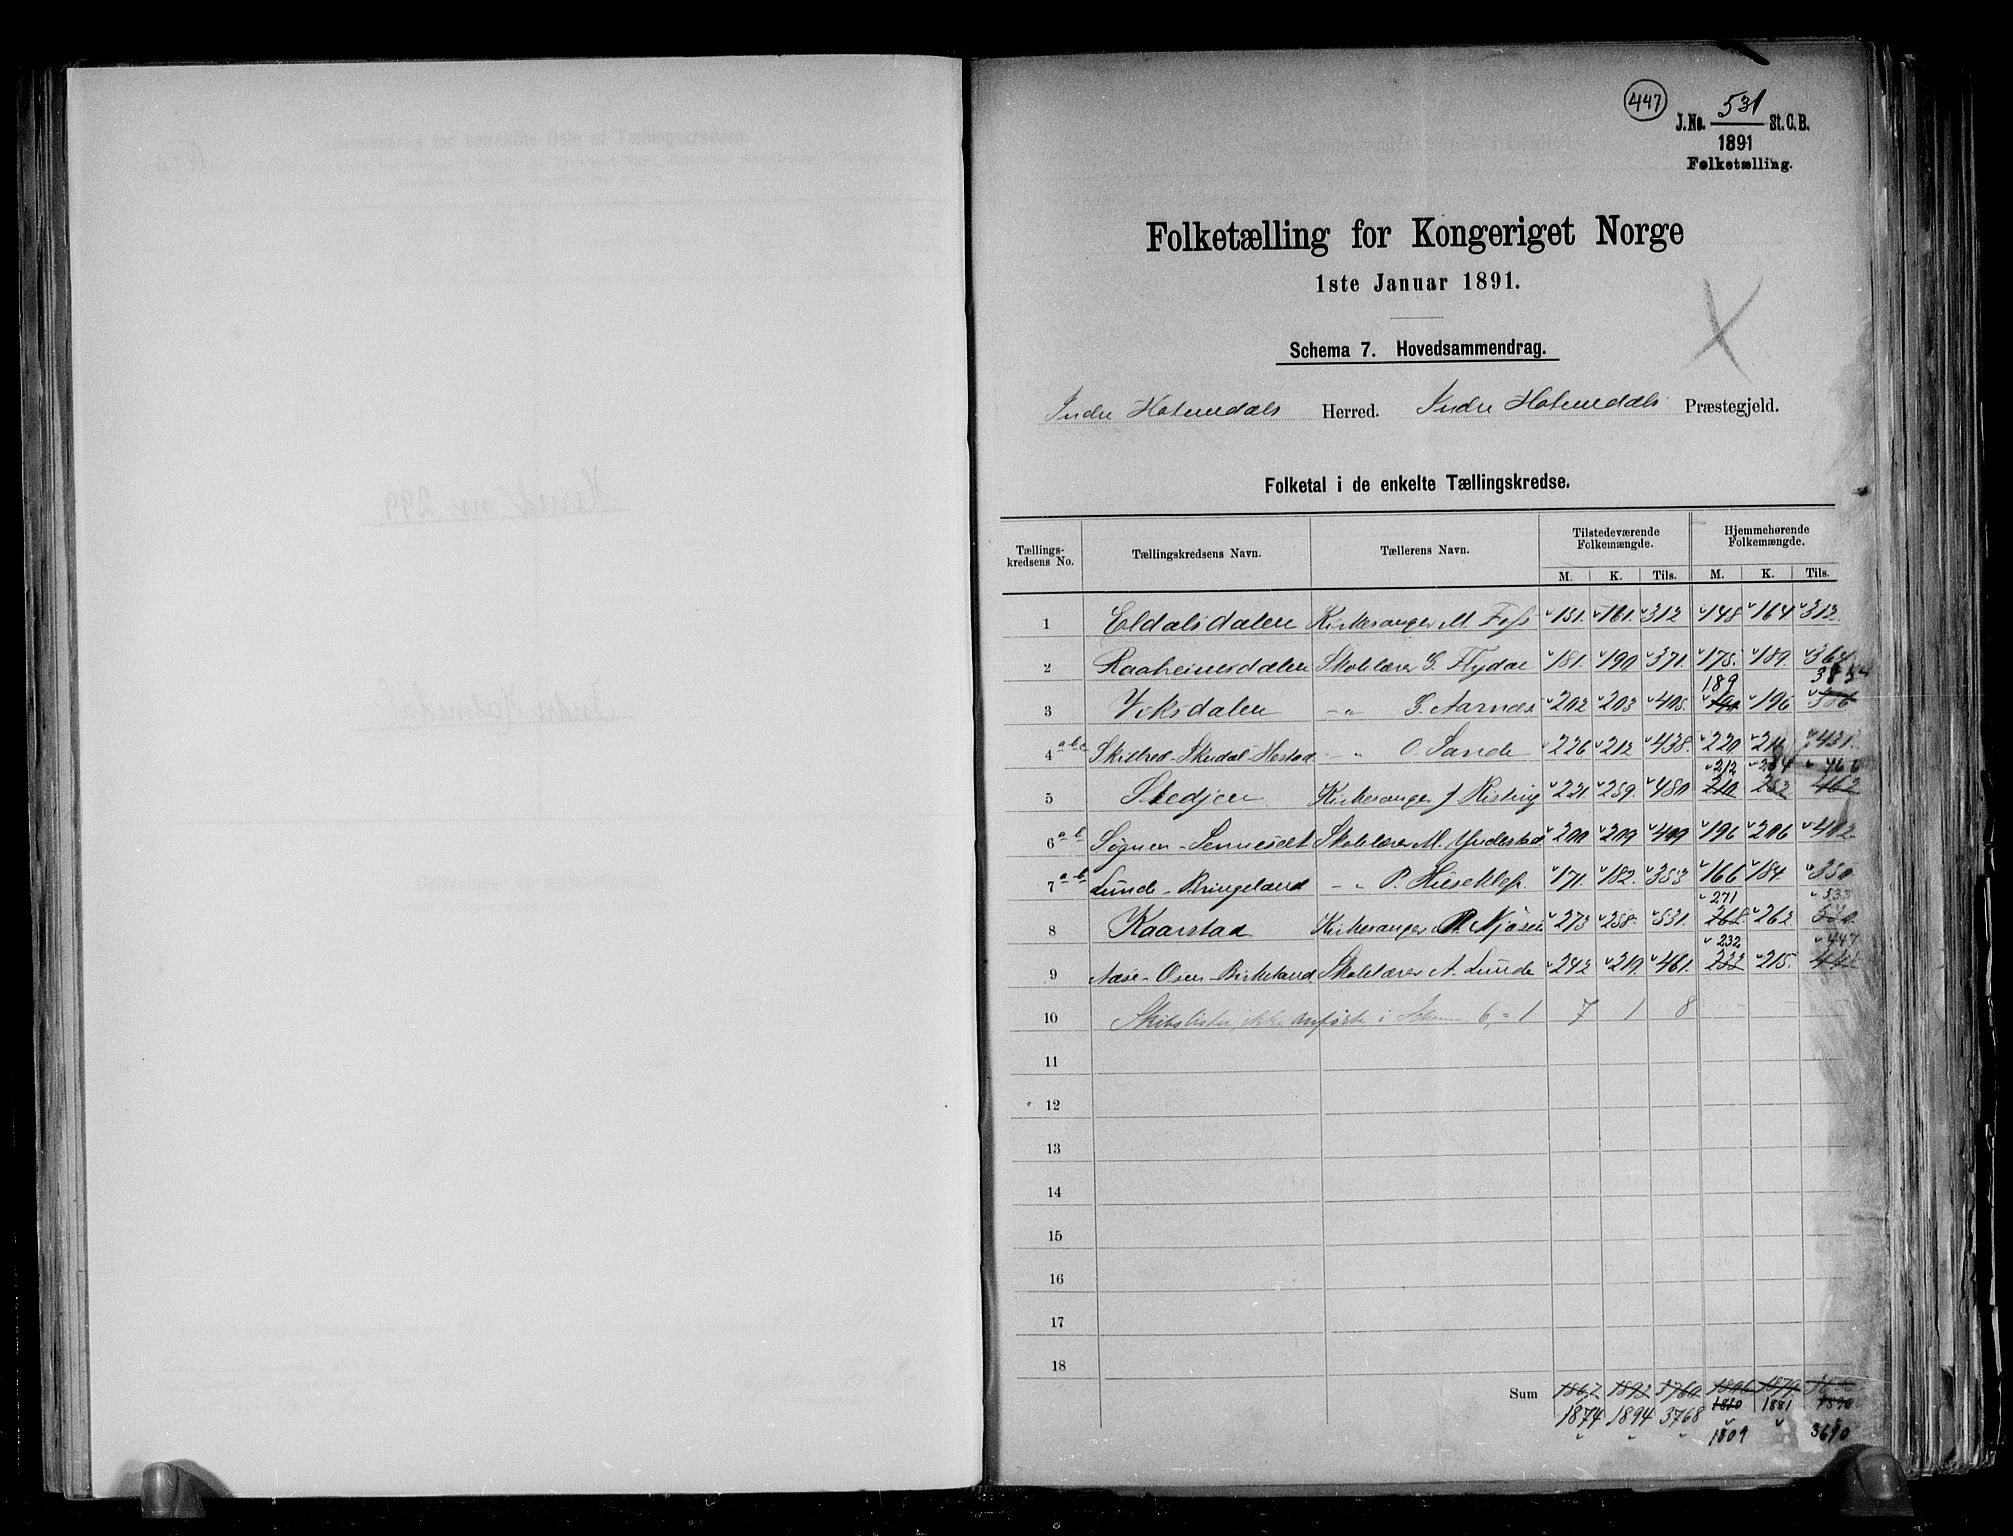 447
J.No. 531 St.C.B.
1891
Folketælling.
Folketælling for Kongeriget Norge
1ste Januar 1891.
Schema 7. Hovedsammendrag.
Indre Holmedals Herred. Indre Holmedals Præstegjeld.
Folketal i de enkelte Tællingskredse.
Tællings-kredsens No. Tællingskredsens Navn. Tællerens Navn. Tilstedeværende Folkemængde. Hjemmehørende Folkemængde.
M. K. Tils. M. K. Tils.
1 Eldalsdalen Kirkesanger M. Foss 151. 161. 312 148 164 312.
2 Raaheimsdalen Skolelærer G. Flydal 181. 190 371. 175. 189. 364
189 385
3 Viksdalen -„- G. Aarnæs 202 203 405. 190 196 386
4 a-b-c Skilbred-Skudal-Hestad -„- O. Sande 226 212 438. 220 211 431.
212 254 466
5 Stedjen Kirkesanger J. Kisting 221 259. 480 210 252 462
6 a-b Sognen-Sennesæt Skolelærer M. Yndestad 200 209 409 196 206 402.
7 a-b Lunde-Bringeland -„- P. Hiseklep. 171. 182. 353 166 184. 350
271 533
8 Kaarstad Kirkesanger A. Njøsen 273 258. 531. 268. 262 530.
232 447
9 Aase-Osen-Birkeland Skolelærer A. Lunde 242 219 461. 233 215. 448
10 Skibslister ikke anførte i Skema 6, = 1 7 1 8 - - -
11
12
13
14
15
16
17
18
Sum 1867 1893 3760 1806 1879
1874 1894 3768 1810 1881
1809 3690